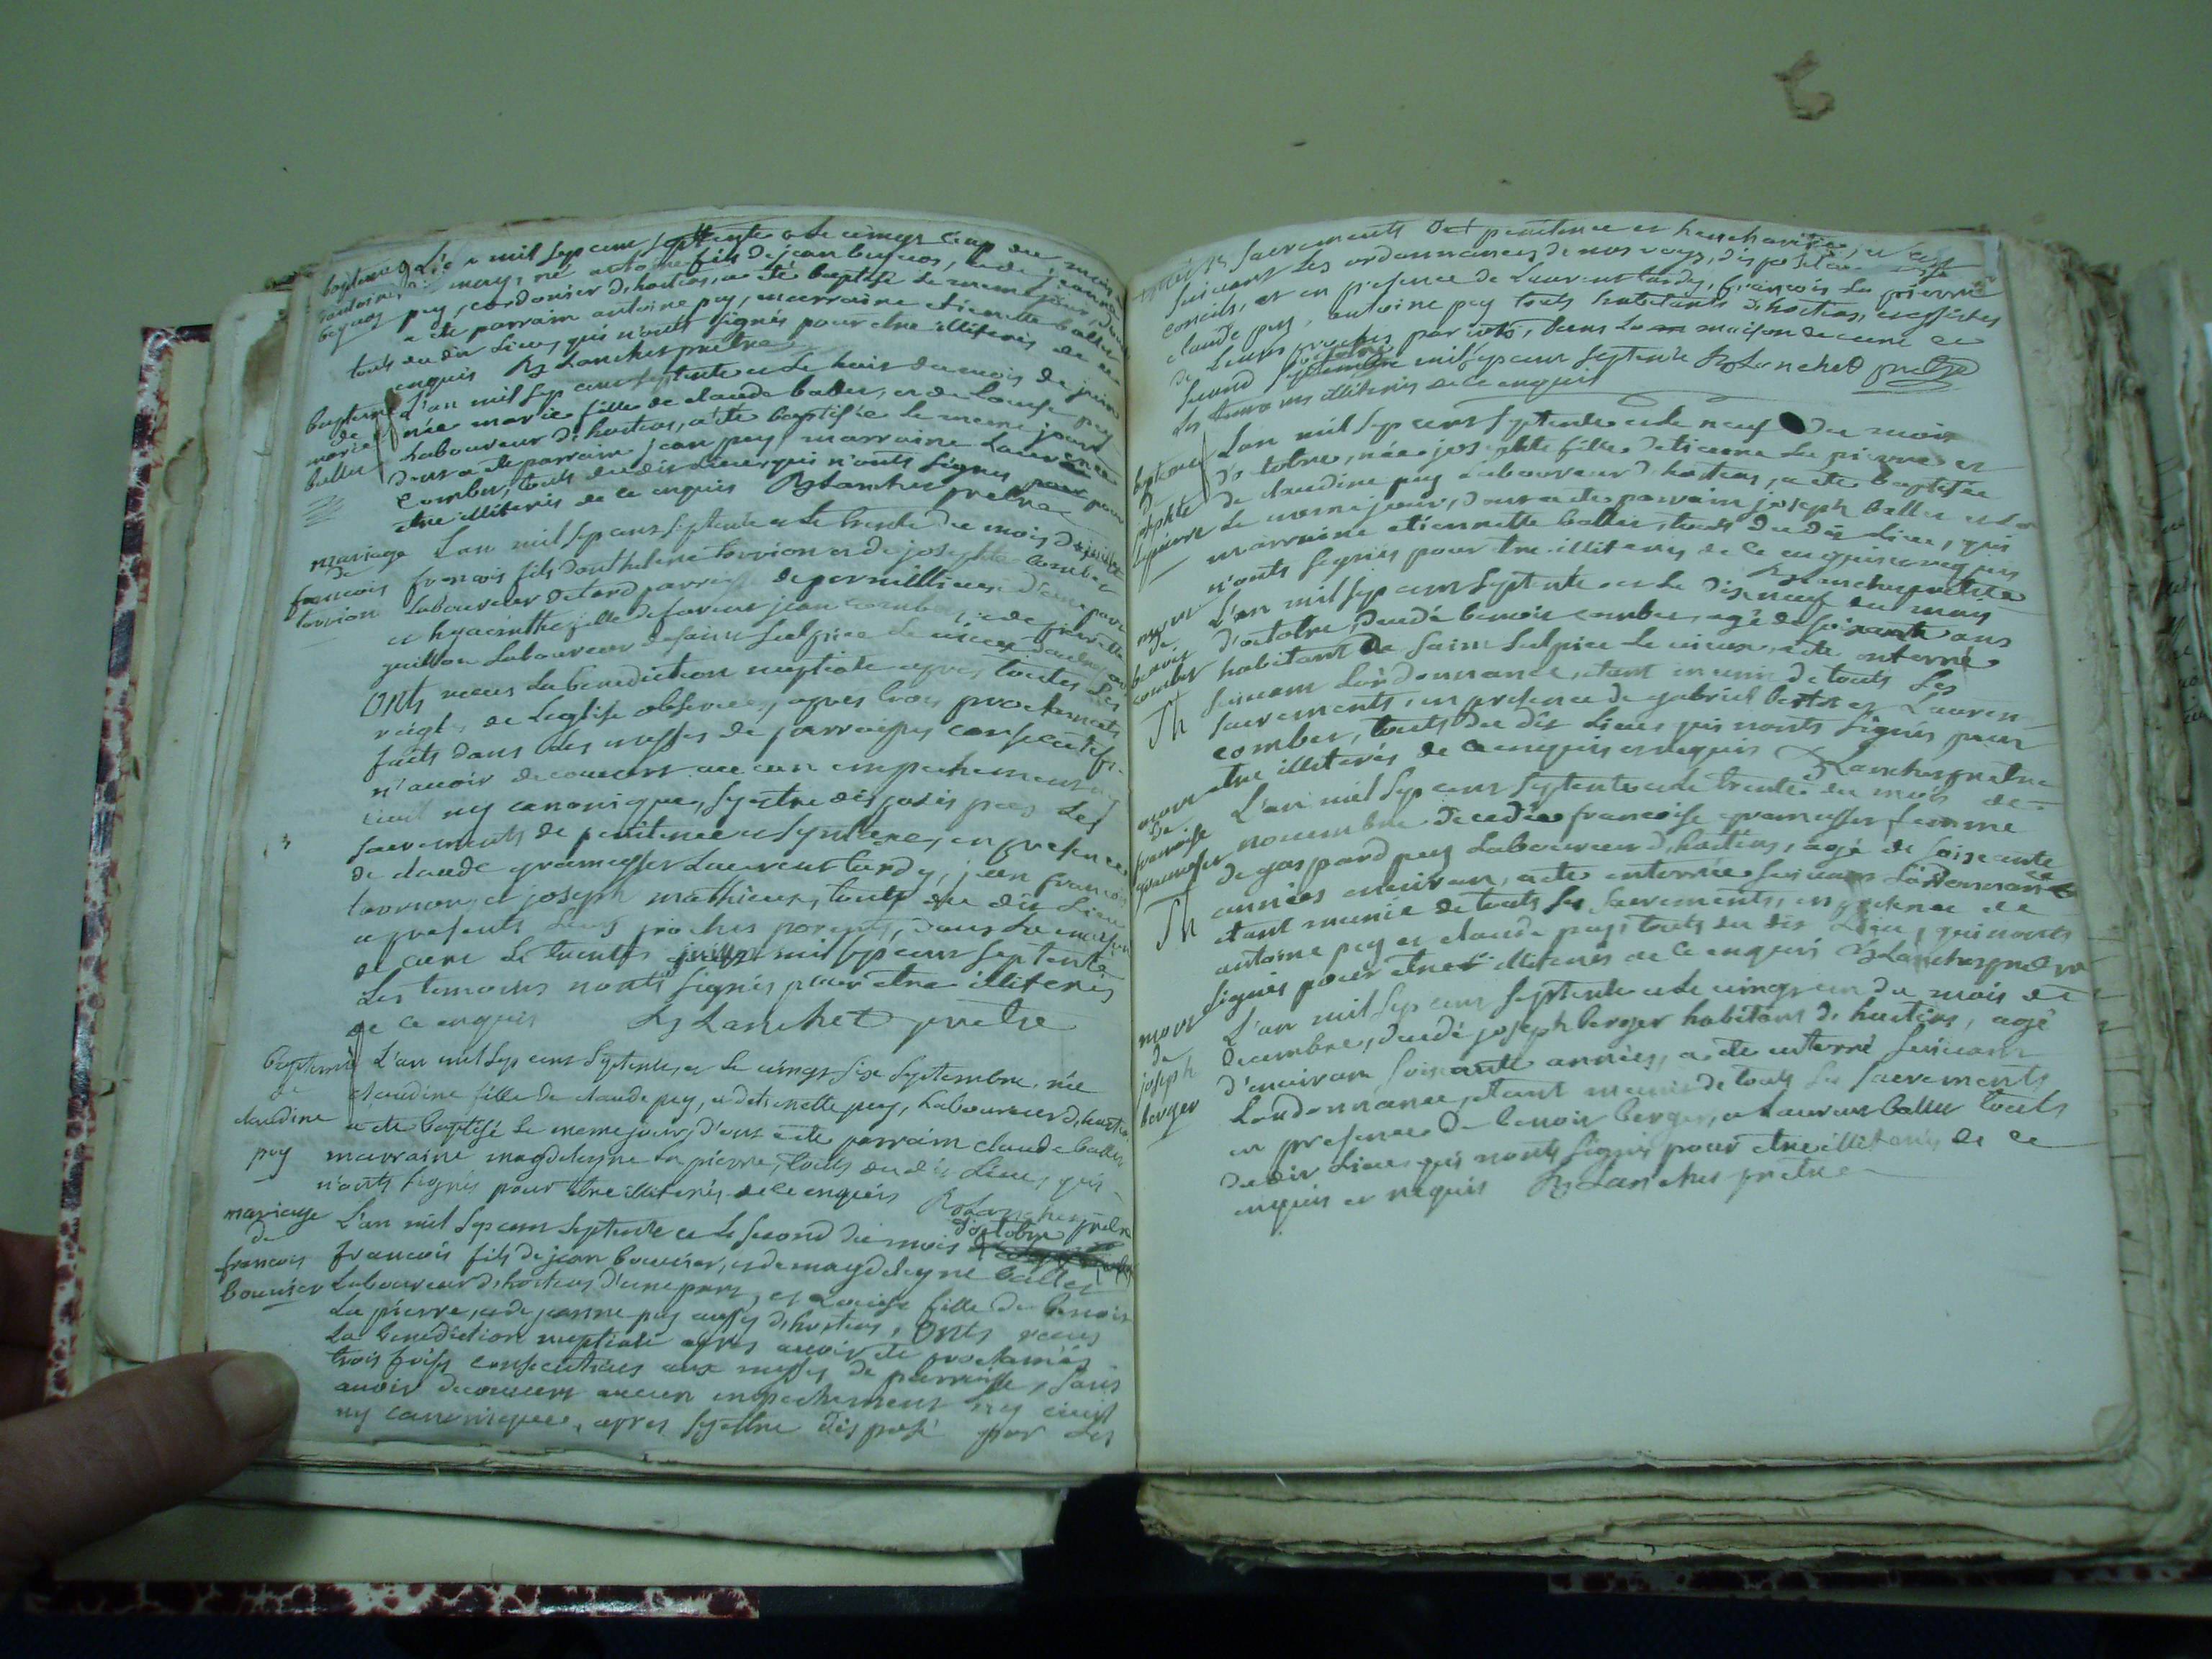 L'an mil sep cens septente et le cinq du mois
de may, né antoine fils de jean
puy, cordonier d'hostias, a été baptisé le meme jour,
a été parrain antoine puy, marraine etienette ballet
touts du dit lieu, qui n'onts signés pour etre illiterés de ce
enquis Lanchet pretre
bapteme
de
marie
ballet
L'an mil sep cens septente et le huit du mois de juin
née marie fille de claude ballet, et de Louise puy
Laboureur d'hostias, a été baptisée le meme jour
dont a été parrain jean puy, marraine Laurence
combet, touts du dit lieu, qui n'onts signés pour
etre illiterés de ce enquis Lanchet pretre
mariage
de
francois
torrion
L'an mil sep cens septente et le trente du mois de
francois fils d'anthelme torrion et de josephte combet
Laboureur
et hyacinthe fille de faveur jean combet et de
guillon Laboureur de saint sulpice le vieux d'autre
onts recus La benediction nuptiale apres toutes Les
regles de L'eglise observées, apres trois proclamats
faits dans les messes de parroisses consecutifs
n'avoir decouvert aucun empechement ny
civil ny canonique, s'y etre disposés par Les
sacrements de penitence et synthaxe, en presence
de claude gramusset Laurent tardy, jean francois
torrion, et joseph mathieux, touts du dit lieu
a presents leurs proches parents, dans La maison
de cure le trente mil sep cens septente
Les temoins n'onts signés pour etre illiterés
de ce enquis Lanchet pretre
bapteme
de
claudine
puy
L'an mil sep cens septente, et le vingt six septembre, née
claudine fille de claude puy, et d'etienette puy, Laboureur d'hostias
a été baptisé le meme jour, d'ont a été parrain claude ballet
marraine magdeleyne La pierre, touts du dit lieu, qui
n'onts signés pour etre illiterés de ce enquis Lanchet pretre
mariage
de
francois
bouvier
L'an mil sep cens septente et le second du mois d'octobre
francois fils de jean bouvier, et de magdeleyne ballet
Laboureur d'hostias d'une part, et Louise fille de benoit
La pierre, et de jeanne puy aussy d'hostias, onts recus
La benediction nuptiale apres avoir été proclamés
trois fois consecutives aux messes de parroisse, sans
avoir decouvert aucun empechement ny civil
ny canonique, apres s'y etre disposé par Les
sacrements de penitence et heucharistie, et
suivant Les ordonnances de nos roys,
conciles, et en presence de Laurent tardy, francois La pierre
claude puy, antoine puy touts habitants d'hostias,
de Leurs proches parents, dans La maison de cure le
second octobre mil sep cens septente Lanchet pretre
Les temoins illiterés de ce enquis
bapteme
de
josephte
Lapierre
L'an mil sep cens septente et le neuf du mois
d'octobre, née josephte fille d'etienne La pierre et
de claudine puy Laboureur d'hostias, a été baptisée
Le meme jour, dont a été parrain joseph ballet et La
marraine etiennette ballet, touts du dit lieu, qui
n'onts signés pour etre illiterés de ce enquis et requis
Lanchet pretre
mort
de
benoit
combet
L'an mil sep cens septente et le dix neuf du mois
d'octobre, decedé benoit combet, agé de soixante ans
habitant de saint sulpice le vieux, a été enterré
suivant L'ordonnance, etant munis de touts Les
sacrements, en presence de gabriel et Laurent
combet, touts du dit lieu, qui n'onts signés pour
etre illiterés de ce enquis et requis Lanchet pretre
mort
de
francoise
gramusset
L'an mil sep cens septente et le trente du mois de
novembre decedée francoise gramusset femme
de gaspard puy Laboureur d'hostias, agé de soixante
années environ, a été enterrée suivant L'ordonnance
etant munie de touts les sacrements, en presence de
antoine puy et claude puy, touts du dit lieu, qui n'onts
signés pour etre illiterés de ce enquis Lanchet pretre
mort
de
joseph
berger
L'an mil sep cens septente et le vingt un du mois de
decembre, decedé joseph berger habitant d'hostias, agé
d'environ soixante années, a été enterré suivant
L'ordonnance, etant munis de touts Les sacrements
en presence de benoit berger, et Laurent ballet touts
du dit lieu, qui n'onts signés pour etre illiterés de ce
enquis et requis Lanchet pretre